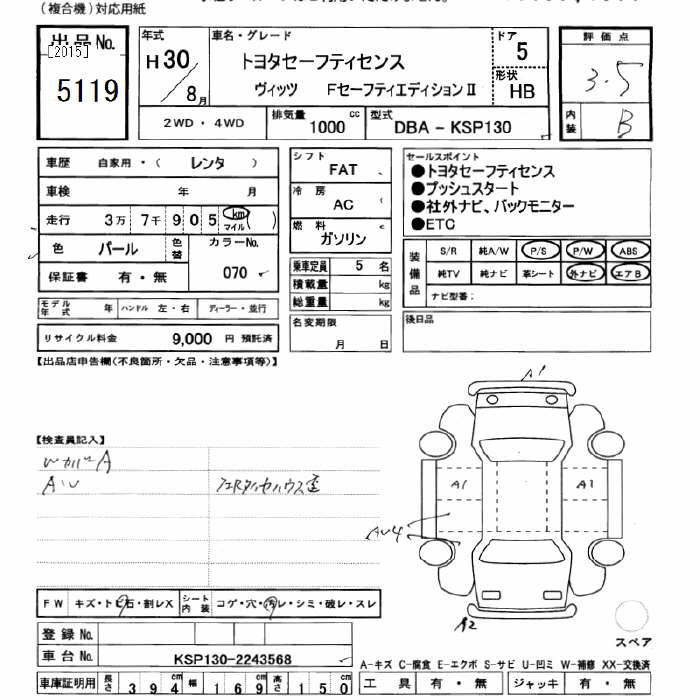 (複合機)対応用紙
出品No.
[2015]
5119
年式
H30/8月
車名・グレード
トヨタセーフティセンス
ヴィッツ FセーフティエディションⅡ
ドア
5
形状
HB
評価点
3.5
内装
B
2WD・4WD
排気量 1000 cc
型式 DBA-KSP130
車歴 自家用・( レンタ )
車検 年 月
走行 3万 7千 9 0 5 km マイル ( )
色 パール 色替 カラーNo.
070
保証書 有・無
モデル年式 年 ハンドル 左・右 ディーラー・並行
リサイクル料金 9,000 円 預託済
シフト
FAT
冷房
AC
燃料
ガソリン
乗車定員 5 名
積載量 kg
総重量 kg
名変期限
月 日
セールスポイント
●トヨタセーフティセンス
●プッシュスタート
●社外ナビ、バックモニター
●ETC
装備品
S/R 純A/W P/S P/W ABS
純TV 純ナビ 革シート 外ナビ エアB
ナビ型番:
後日品
【出品店申告欄(不良箇所・欠品・注意事項等)】
【検査員記入】
A1
A1
A1
A2
FW キズ・トビ石・割レX シート内装 コゲ・穴・汚レ・シミ・破レ・スレ
登録No.
車台No. KSP130-2243568
スペア
A-キズ C-腐食 E-エクボ S-サビ U-凹ミ W-補修 XX-交換済
車庫証明用 長さ 3 9 4 cm 幅 1 6 9 cm 高さ 1 5 0 cm
工具 有・無 ジャッキ 有・無